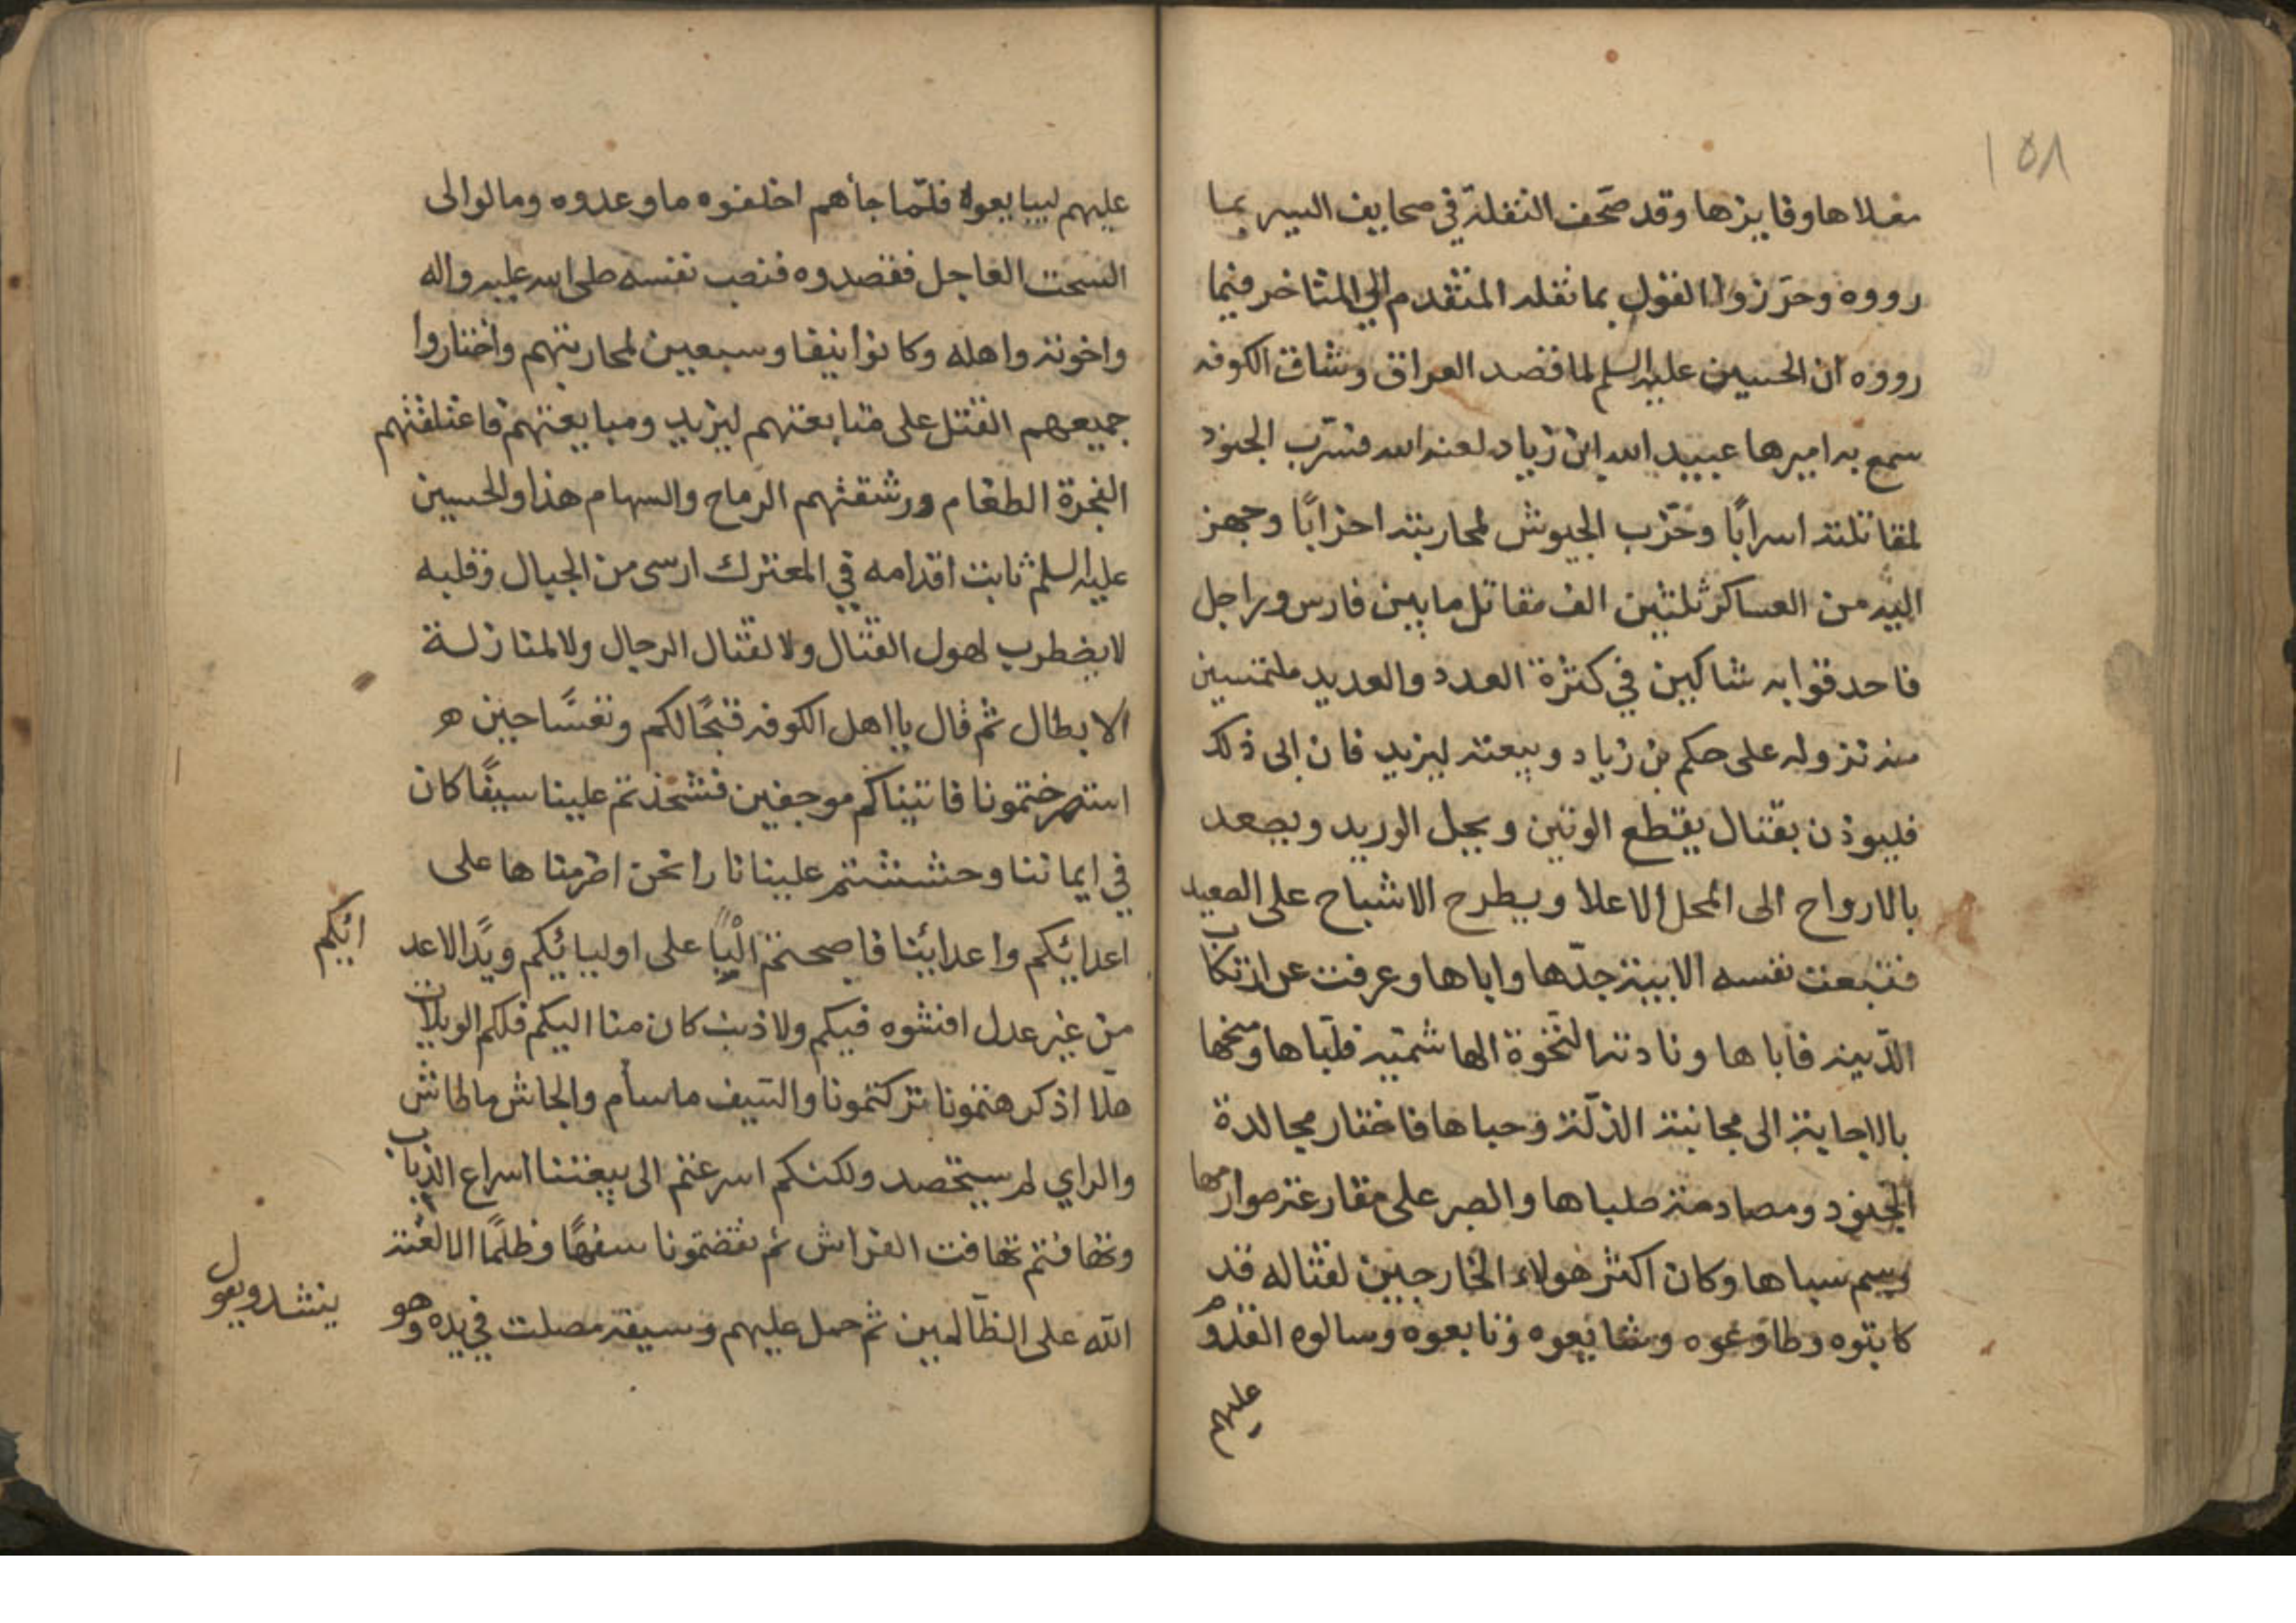 ١٥٨
معلاها وفايزها وقد صحف النقلة في صحايف السير بما
رووه وحرزوا القول بما نقله المتقدم الي المتاخر فيما
رووه ان الحسين عليه السلم لما قصد العراق وشاق الكوفه
سمع به اميرها عبيد الله ابن زياد لعنه الله فسرب الجنود
لمقاتلته اسرابًا وحزب الجيوش لمحاربته احزابًا وجهز
اليه من العساكر ثلثين الف مقاتل ما بين فارس وراجل
فاحدقوا به شاكين في كثرة العدد والعديد ملتمسين
منه نزوله على حكم بن زياد وبيعته ليزيد فان ابى ذلك
فليوذن بقتال يقطع الوتين وبحبل الوريد ويصعد
بالارواح الى المحل الاعلا ويطرح الاشباح على الصعيد
فتبعت نفسه الابية جدّها واباها وعرفت عن ارتكاب
الدّنية فاباها ونادته النّخوة الهاشميّه فلبّاها ومنحها
بالاجابة الى مجانبة الذلّة وحباها فاختار مجالدة
الجنود ومصادمة ظباها والصبر على مقارعة صوارمها
وسم سباها وكان اكثر هولاء الخارجين لقتاله قد
كاتبوه وطاوعوه وشايعوه وتابعوه وسالوه القدوم
عليهم
عليهم ليبايعوه فلمّا جأهم اخلفوه ما وعدوه ومالوا الى
السحت العاجل فقصدوه فنصب نفسه صلى الله عليه واله
واخوته واهله وكانوا نيفا وسبعين لمحاربتهم واختاروا
جميعهم القتل على متابعتهم ليزيد ومبايعتهم فاعتلقتهم
الفجرة الطغام ورشقتهم الرماح والسهام هذا والحسين
عليه السلم ثابت اقدامه في المعترك ارسى من الجبال وقلبه
لا يضطرب لهول القتال ولا لقتال الرجال ولا لمنازلة
الابطال ثم قال يا اهل الكوفه قبحًا لكم وتعسًا حين
استصرختمونا فاتيناكم موجفين فشحذتم علينا سيفًا كان
في ايماننا وحششتم علينا نارا نحن اضرمناها على
اعدائكم واعدائنا فاصحتم البًا على اوليائكم ويدًا لاعدائكم
من غير عدل افشوه فيكم ولا ذنب كان منا اليكم فلكم الويلات
هلّا اذ كرهتمونا تركتمونا والسّيف ماسأم والجاش ماطاش
والراي لم يستحصد ولكنكم اسرعتم الى بيعتنا اسراع الذباب
وتهافتم تهافت الفراش ثم نقضتمونا سفهًا وظلمًا الا لعنة
الله على الظالمين ثم حمل عليهم وسيفه مصلت في يده وهو ينشد ويقول